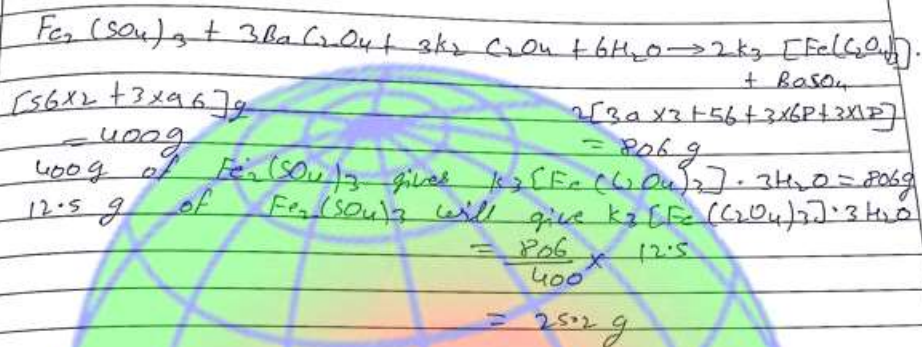 Fe2 (SO4)3 + 3BaC2O4 + 3K2 C2O4 + 6H2O → 2K3 [Fe(C2O4)3].
+ BaSO4
[56x2 + 3x96]g
2[39x3+56+3x68+3x18]
= 400g
= 806 g
400g of Fe2(SO4)3 gives K3[Fe(C2O4)3].3H2O = 806g
12.5 g of Fe2(SO4)3 will give K3[Fe(C2O4)3].3H2O
= 806/400 x 12.5
= 25.2 g